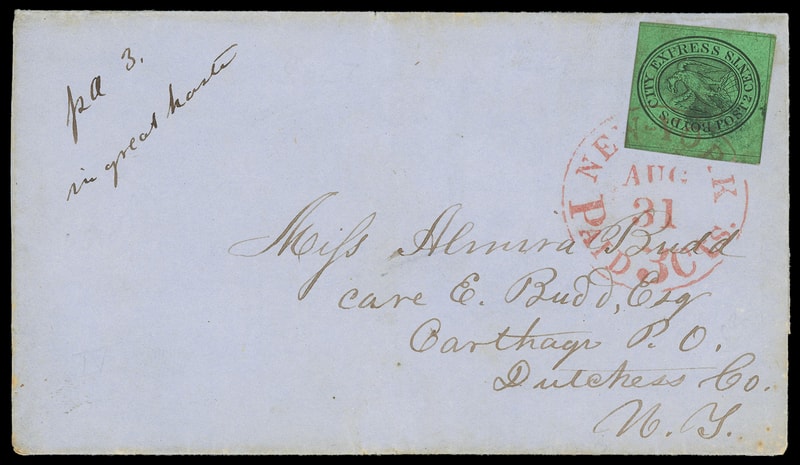 pd 3.
in great haste
BOYD'S CITY EXPRESS POST 2 CENTS
NEW-YORK
AUG
31
PAID 3 CTS.
Miss Almira Budd
care E. Budd, Esq
Carthage P. O.
Dutchess Co.
N. Y.